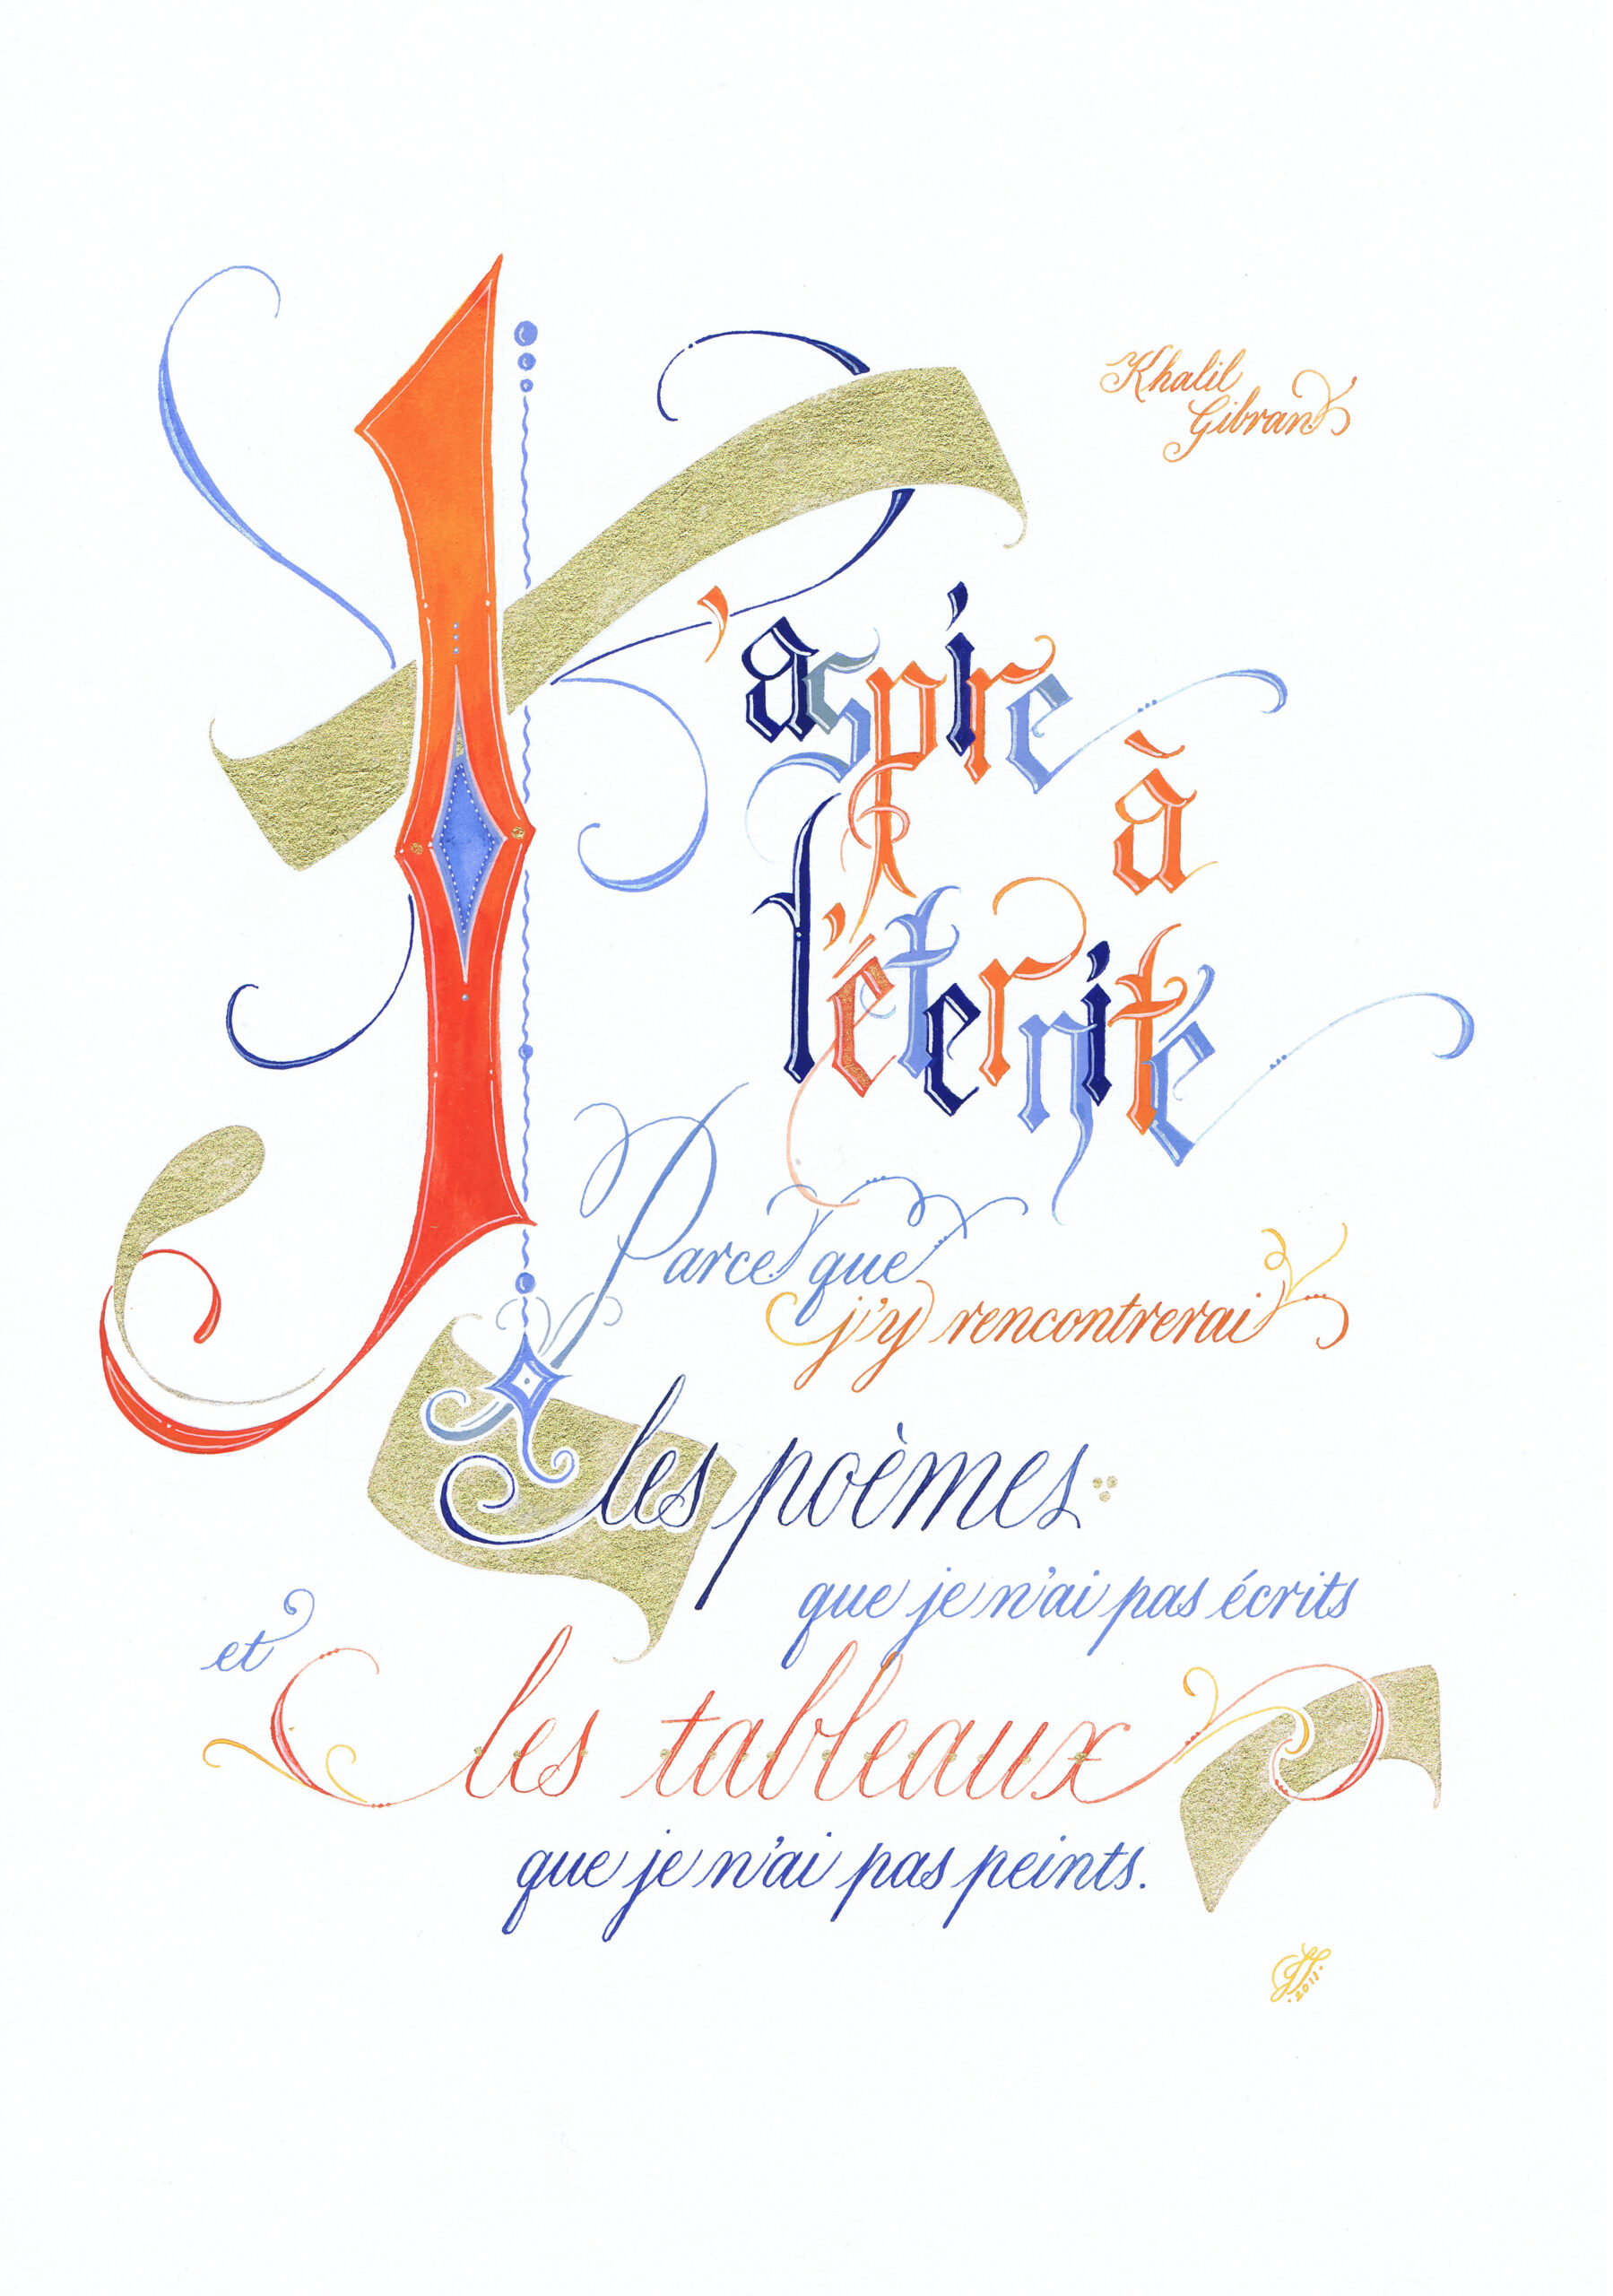 Khalil
Gibran
J'aspire
à
l'éternité
Parce que
j'y rencontrerai
les poèmes
que je n'ai pas écrits
et
les tableaux
que je n'ai pas peints.
2011